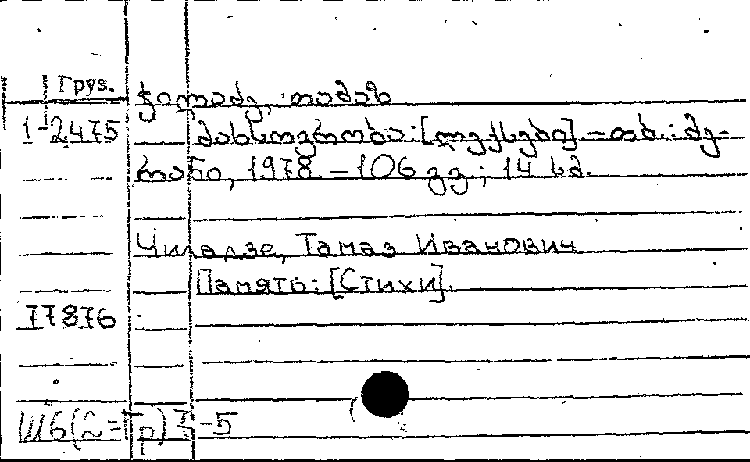 Груз.
ჭილაძე, თამაზ
1-2475 მახსოვრობა: [ლექსები]. – თბ.: მე-
რანი, 1978 – 106 გვ; 14 სმ.
Чиладзе, Тамаз Иванович
Память: [Стихи].
77876
Ш6(2=Гр)7-5